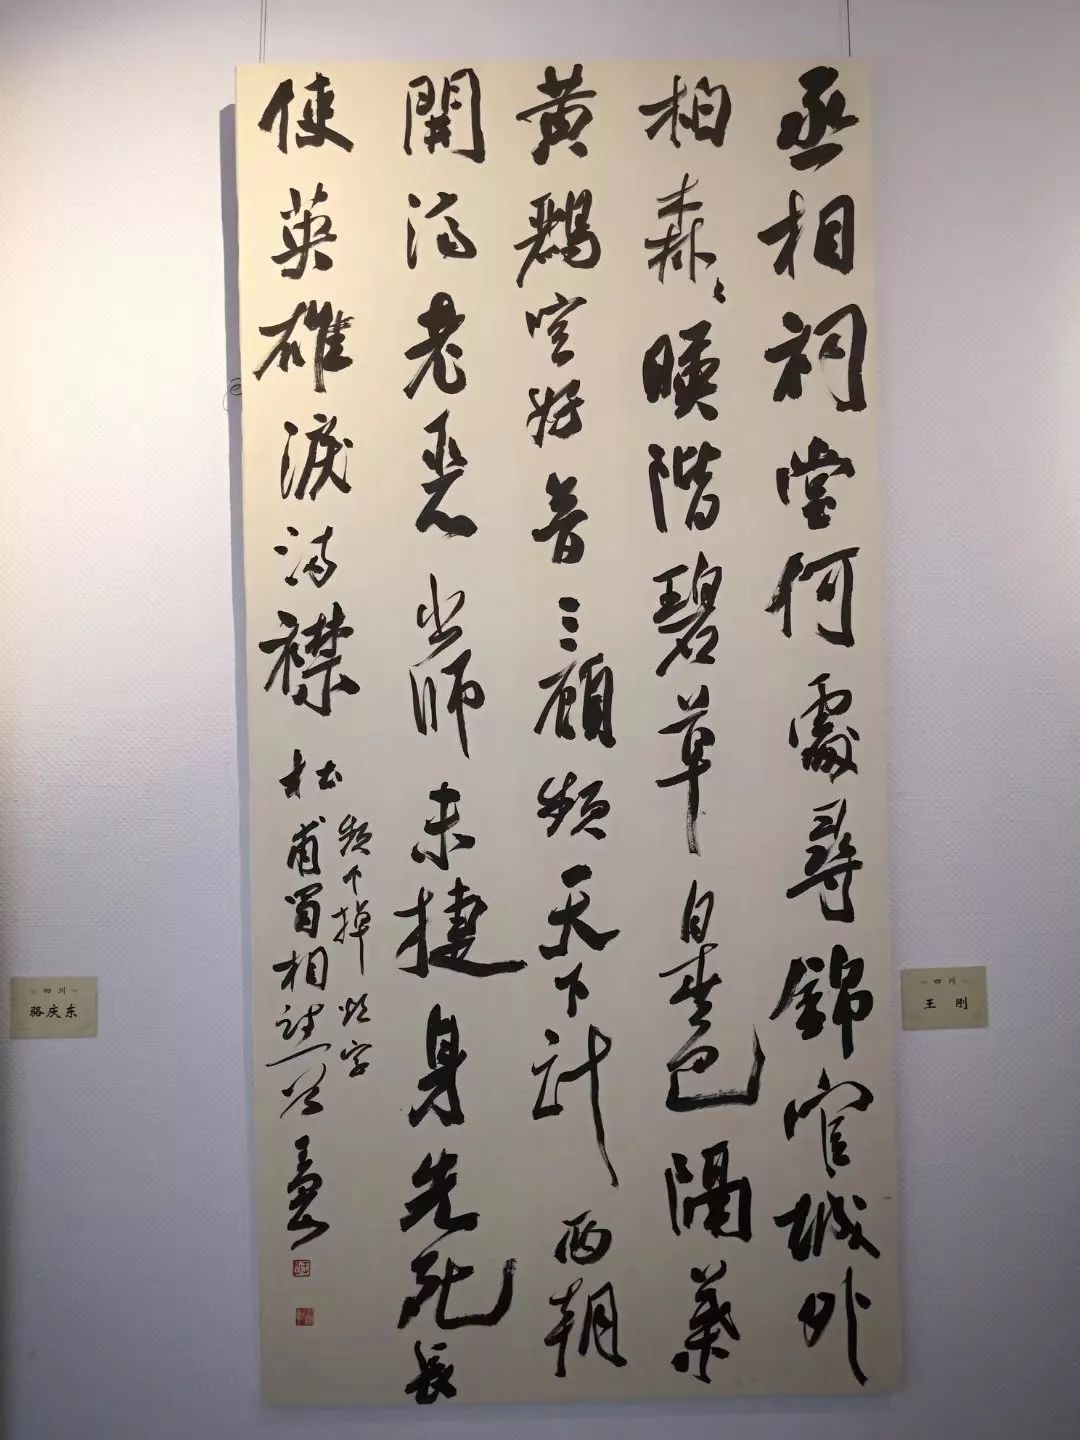 丞相祠堂何處尋錦官城外
柏森々暎階碧草自春色隔葉
黄鸝空好音三顧頻天下計兩朝
開濟老臣心出師未捷身先死長
使英雄淚满襟
杜甫蜀相詩一首
頻下掉煩字
四川
王刚
四川
骆庆东